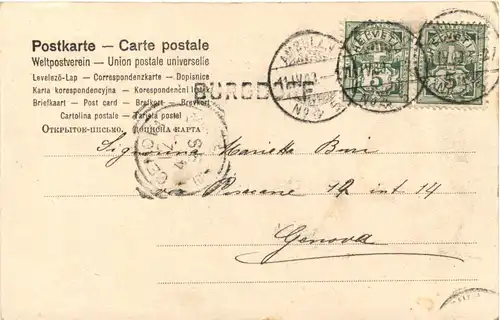 Postkarte — Carte postale
Weltpostverein — Union postale universelle
Levelező-Lap — Correspondenzkarte — Dopisnice
Karta korespondencyjna — Korespondenční lístek
Briefkaart — Post card — Brefkort — Brevkort
Cartolina postale — Tarjeta postal
ОТКРЫТОЕ-ПИСЬМО. ДОПИСНА КАРТА
BURGDORF
HELVETIA
Signorina Marietta
via Pisacane 12 int 14
Genova